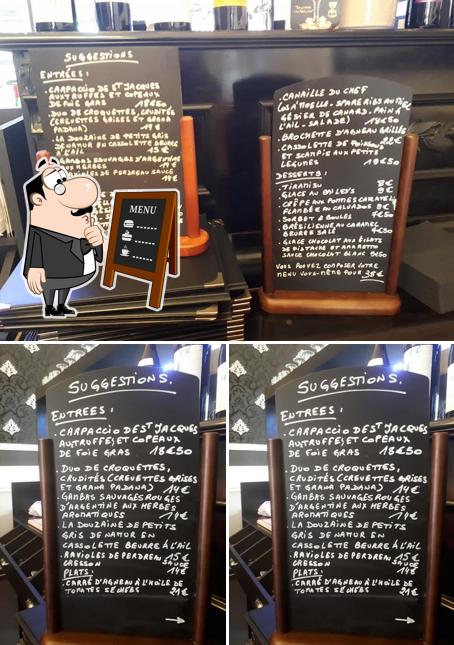 SUGGESTIONS
ENTRÉES :
. CARPACCIO DE ST JACQUES
AUX TRUFFES ET COPEAUX
DE FOIE GRAS 18€50
. DUO DE CROQUETTES, CRUDITÉS
(CREVETTES GRISES ET GRANA
PADANA) 14€
. LA DOUZAINE DE PETITS GRIS
DE NAMUR EN CASSOLETTE BEURRE
À L'AIL 15€
GAMBAS SAUVAGES D'ARGENTINE
AUX HERBES
RAVIOLES DE PERDREAU SAUCE
MENU
. CANAILLE DU CHEF
(OS À MOELLE - SPARE RIBS AU MIEL
GÉSIER DE CANARD - PAIN À
L'AIL - SALADE) 19€50
. BROCHETTE D'AGNEAU GRILLÉE
22€
. CASSOLETTE DE POISSONS
ET SCAMPIS AUX PETITS
LÉGUMES 19€50
DESSERTS :
. TIRAMISU 8€
. GLACE AU BAILEY'S 8€
. CRÊPE AUX POMMES CARAMÉLISÉES
FLAMBÉE AU CALVADOS 9€
. SORBET 2 BOULES 7€50
. BRÉSILIENNE AU CARAMEL
BEURRE SALÉ 7€50
. GLACE CHOCOLAT AUX ÉCLATS
DE PISTACHE ET AMARETTO
SAUCE CHOCOLAT BLANC 9€50
VOUS POUVEZ COMPOSER VOTRE
MENU VOUS-MÊME POUR 38€
SUGGESTIONS.
ENTREES :
. CARPACCIO DE ST JACQUES
AUX TRUFFES ET COPEAUX
DE FOIE GRAS 18€50
. DUO DE CROQUETTES,
CRUDITÉS (CREVETTES GRISES
ET GRANA PADANA) 14€
. GAMBAS SAUVAGES ROUGES
D'ARGENTINE AUX HERBES
AROMATIQUES 19€
. LA DOUZAINE DE PETITS
GRIS DE NAMUR EN
CASSOLETTE BEURRE À L'AIL
15€
. RAVIOLES DE PERDREAU SAUCE
CRESSON 14€
PLATS :
. CARRÉ D'AGNEAU À L'HUILE DE
TOMATES SÉCHÉES 21€
SUGGESTIONS.
ENTREES :
. CARPACCIO DE ST JACQUES
AUX TRUFFES ET COPEAUX
DE FOIE GRAS 18€50
. DUO DE CROQUETTES,
CRUDITÉS (CREVETTES GRISES
ET GRANA PADANA) 14€
. GAMBAS SAUVAGES ROUGES
D'ARGENTINE AUX HERBES
AROMATIQUES 19€
. LA DOUZAINE DE PETITS
GRIS DE NAMUR EN
CASSOLETTE BEURRE À L'AIL
15€
. RAVIOLES DE PERDREAU SAUCE
CRESSON 14€
PLATS :
. CARRÉ D'AGNEAU À L'HUILE DE
TOMATES SÉCHÉES 21€